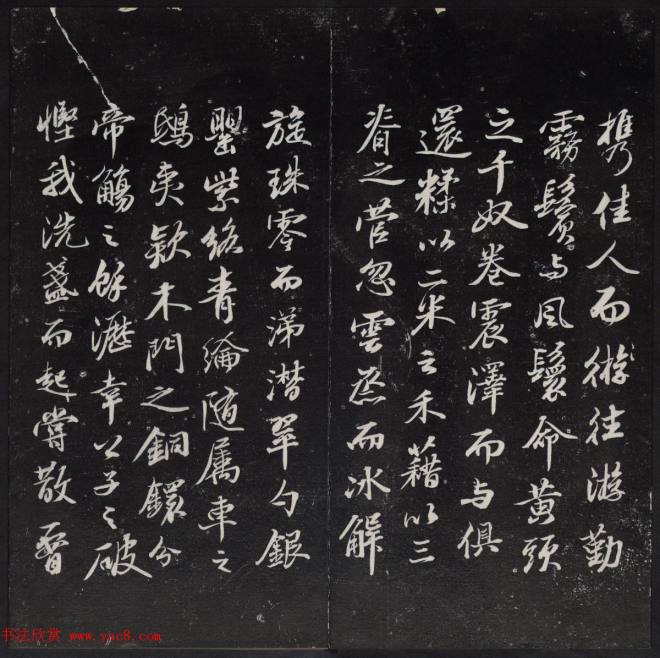 携佳人而遊往游勤
霧鬢与風鬟命黃頭
之千奴卷震澤而与俱
還糅以二米之禾藉以三
脊之菅忽雲烝而冰解
旋珠零而涕潸翠勺銀
罌紫絡青綸隨属車之
鴟夷款木門之銅鐶分
帝觴之餘瀝幸公子之破
慳我洗盞而起嘗散
书法欣赏 www.yac8.com